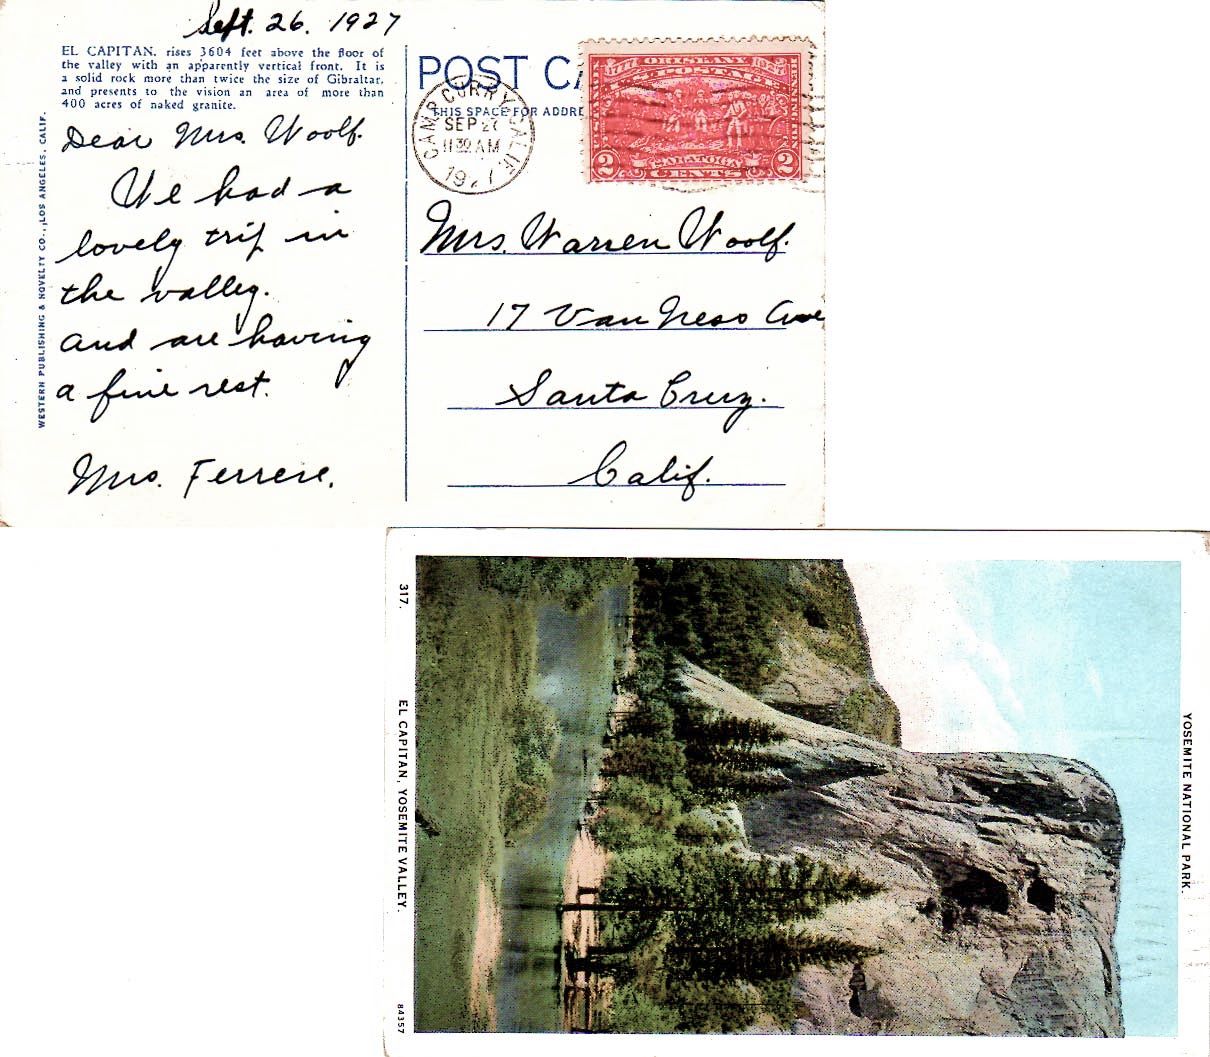 Sept. 26. 1927
EL CAPITAN, rises 3604 feet above the floor of
the valley with an apparently vertical front. It is
a solid rock more than twice the size of Gibraltar,
and presents to the vision an area of more than
400 acres of naked granite.
Dear Mrs. Woolf.
We had a
lovely trip in
the valley.
and are having
a fine rest.
Mrs. Ferrere.
WESTERN PUBLISHING & NOVELTY CO., LOS ANGELES, CALIF.
POST CA
THIS SPACE FOR ADDRE
CAMP CURRY CALIF.
SEP 27
11 30 AM
1927
1777 ORISKANY 1927
U.S. POSTAGE
BENNINGTON
2 SARATOGA 2
CENTS
Mrs. Warren Woolf.
17 Van Ness Ave
Santa Cruz.
Calif.
YOSEMITE NATIONAL PARK.
317. EL CAPITAN, YOSEMITE VALLEY. 84357